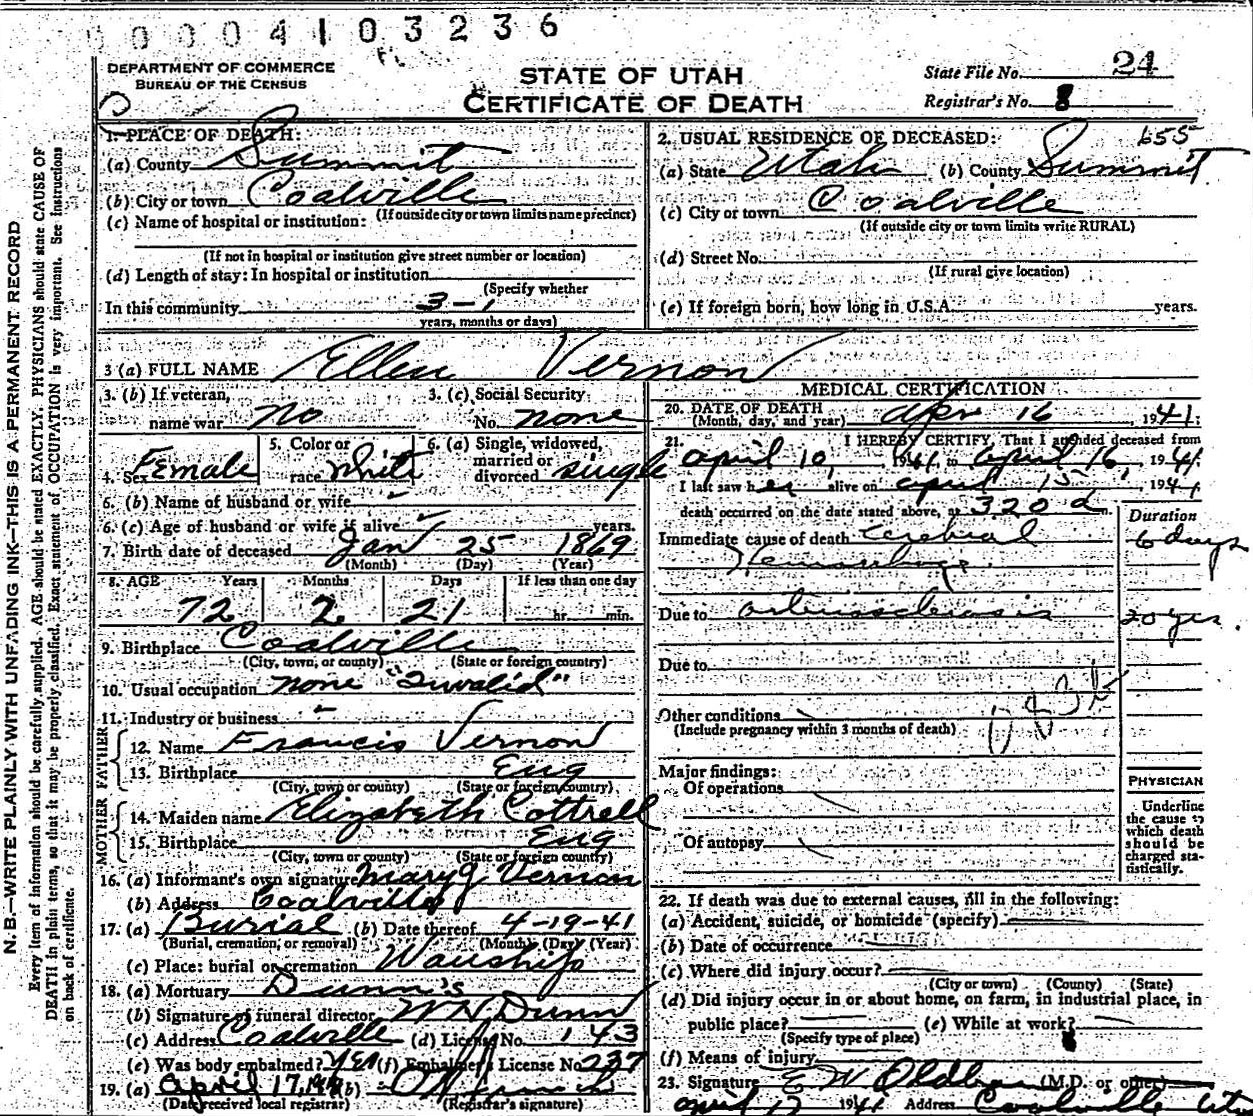 00004103236
DEPARTMENT OF COMMERCE
BUREAU OF THE CENSUS
STATE OF UTAH
CERTIFICATE OF DEATH
State File No. 24
Registrar's No. 8
1. PLACE OF DEATH:
(a) County Summit
(b) City or town Coalville
(If outside city or town limits name precinct)
(c) Name of hospital or institution:
(If not in hospital or institution give street number or location)
(d) Length of stay: In hospital or institution
(Specify whether
In this community 3-1
years, months or days)
2. USUAL RESIDENCE OF DECEASED: 655
(a) State Utah (b) County Summit
(c) City or town Coalville
(If outside city or town limits write RURAL)
(d) Street No.
(If rural give location)
(e) If foreign born, how long in U.S.A. years.
3 (a) FULL NAME Ellen Vernon
3. (b) If veteran, name war No
3. (c) Social Security No. none
4. Sex Female
5. Color or race White
6. (a) Single, widowed, married or divorced single
6. (b) Name of husband or wife
6. (c) Age of husband or wife if alive years.
7. Birth date of deceased Jan 25 1869
(Month) (Day) (Year)
8. AGE Years Months Days If less than one day
72 2 21 hr. min.
9. Birthplace Coalville
(City, town, or county) (State or foreign country)
10. Usual occupation none "Invalid"
11. Industry or business
FATHER
12. Name Francis Vernon
13. Birthplace Eng
(City, town or county) (State or foreign country)
MOTHER
14. Maiden name Elizabeth Cottrell
15. Birthplace Eng
(City, town or county) (State or foreign country)
16. (a) Informant's own signature Mary J Vernon
(b) Address Coalville
17. (a) Burial (b) Date thereof 4-19-41
(Burial, cremation, or removal) (Month) (Day) (Year)
(c) Place: burial or cremation Wanship
18. (a) Mortuary Dunn's
(b) Signature of funeral director W H Dunn
(c) Address Coalville (d) License No. 143
(e) Was body embalmed? Yes (f) Embalmer's License No. 237
19. (a) April 17, 1941 (b)
(Date received local registrar) (Registrar's signature)
MEDICAL CERTIFICATION
20. DATE OF DEATH Apr 16, 1941:
(Month, day, and year)
21. I HEREBY CERTIFY, That I attended deceased from
april 10, 1941 to april 16, 1941
I last saw her alive on april 15, 1941
death occurred on the date stated above, at 320 a m.
Duration
Immediate cause of death Cerebral 6 days
Hemorrhage
Due to arteriosclerosis 20 yrs.
Due to
Other conditions
(Include pregnancy within 3 months of death)
Major findings:
Of operations
Of autopsy
PHYSICIAN
Underline
the cause to
which death
should be
charged sta-
tistically.
22. If death was due to external causes, fill in the following:
(a) Accident, suicide, or homicide (specify)
(b) Date of occurrence
(c) Where did injury occur?
(City or town) (County) (State)
(d) Did injury occur in or about home, on farm, in industrial place, in
public place? (e) While at work?
(Specify type of place)
(f) Means of injury
23. Signature E W Oldham (M.D. or other)
april 17 1941 Address Coalville Ut
N. B.—WRITE PLAINLY WITH UNFADING INK—THIS IS A PERMANENT RECORD
Every item of information should be carefully supplied. AGE should be stated EXACTLY. PHYSICIANS should state CAUSE OF
DEATH in plain terms, so that it may be properly classified. Exact statement of OCCUPATION is very important. See instructions
on back of certificate.